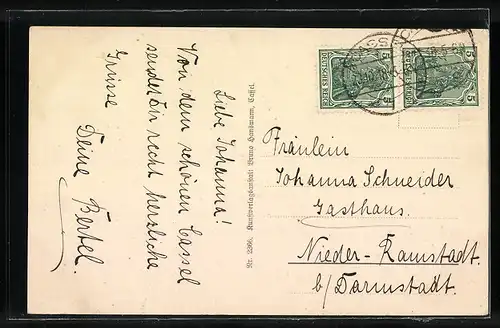 Liebe Johanna!
Von dem schönen Cassel
sendet Dir recht herzliche
Grüsse
Deine Bertel.
Nr. 2360. Kunstverlagsanstalt Bruno Hansmann, Cassel.
5 5
DEUTSCHES REICH
5 5
Fräulein
Johanna Schneider
Gasthaus.
Nieder-Ramstadt.
b/Darmstadt.